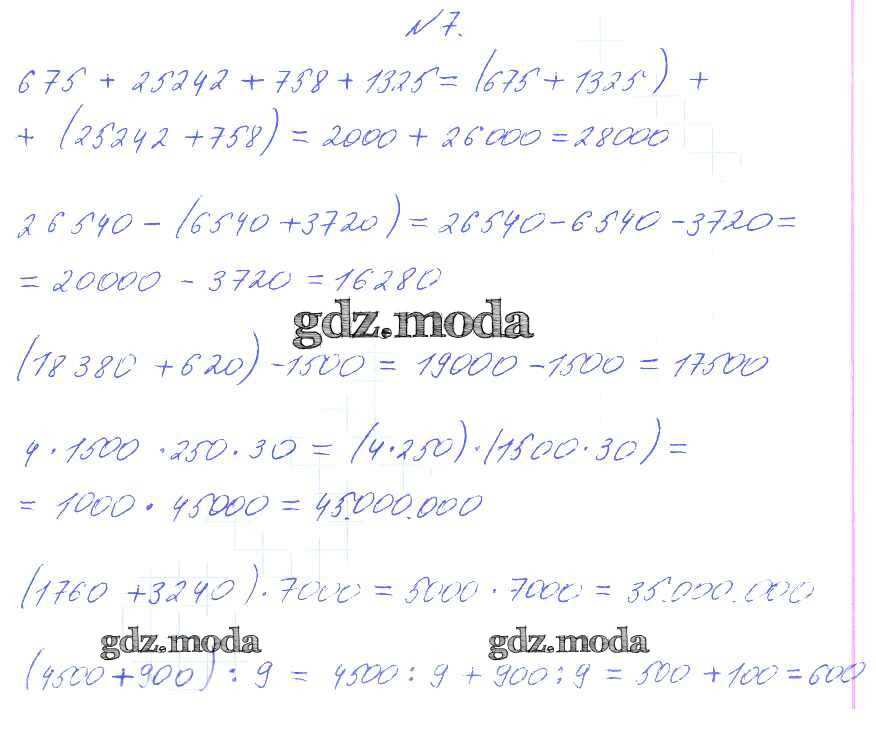 №7.
675 + 25242 + 758 + 1325 = (675 + 1325) +
+ (25242 + 758) = 2000 + 26000 = 28000
26540 - (6540 + 3720) = 26540 - 6540 - 3720 =
= 20000 - 3720 = 16280
gdz.moda
(18380 + 620) - 1500 = 19000 - 1500 = 17500
4 · 1500 · 250 · 30 = (4 · 250) · (1500 · 30) =
= 1000 · 45000 = 45.000.000
(1760 + 3240) · 7000 = 5000 · 7000 = 35.000.000
gdz.moda gdz.moda
(4500 + 900) : 9 = 4500 : 9 + 900 : 9 = 500 + 100 = 600